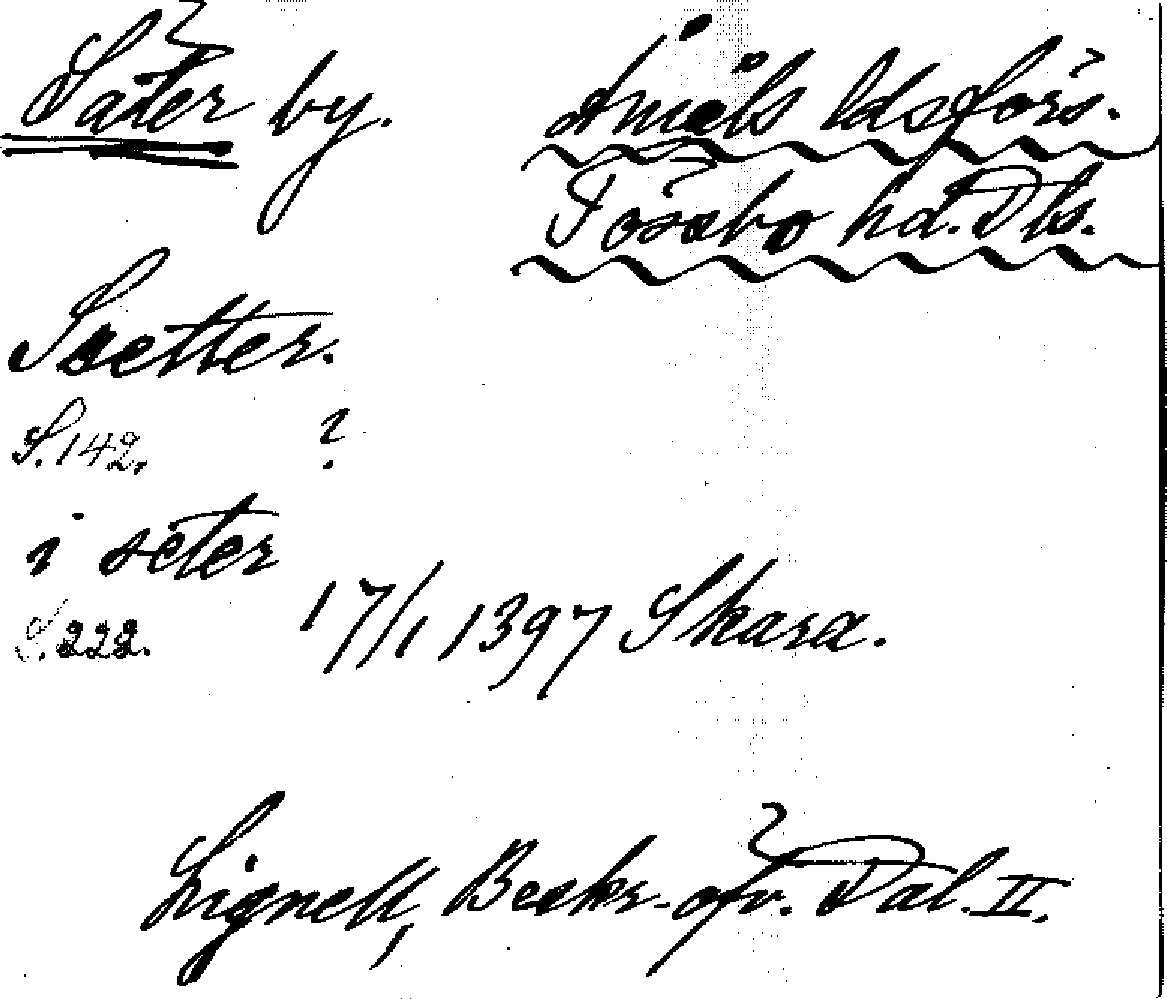 Säter by.
Åmåls ldsförs.
Tössbo hd. Dls.
Saetter.
S. 142. ?
i seter
S. 222. 17/1 1397 Skara.
Lignell, Beskr. öfv. Dal. II.